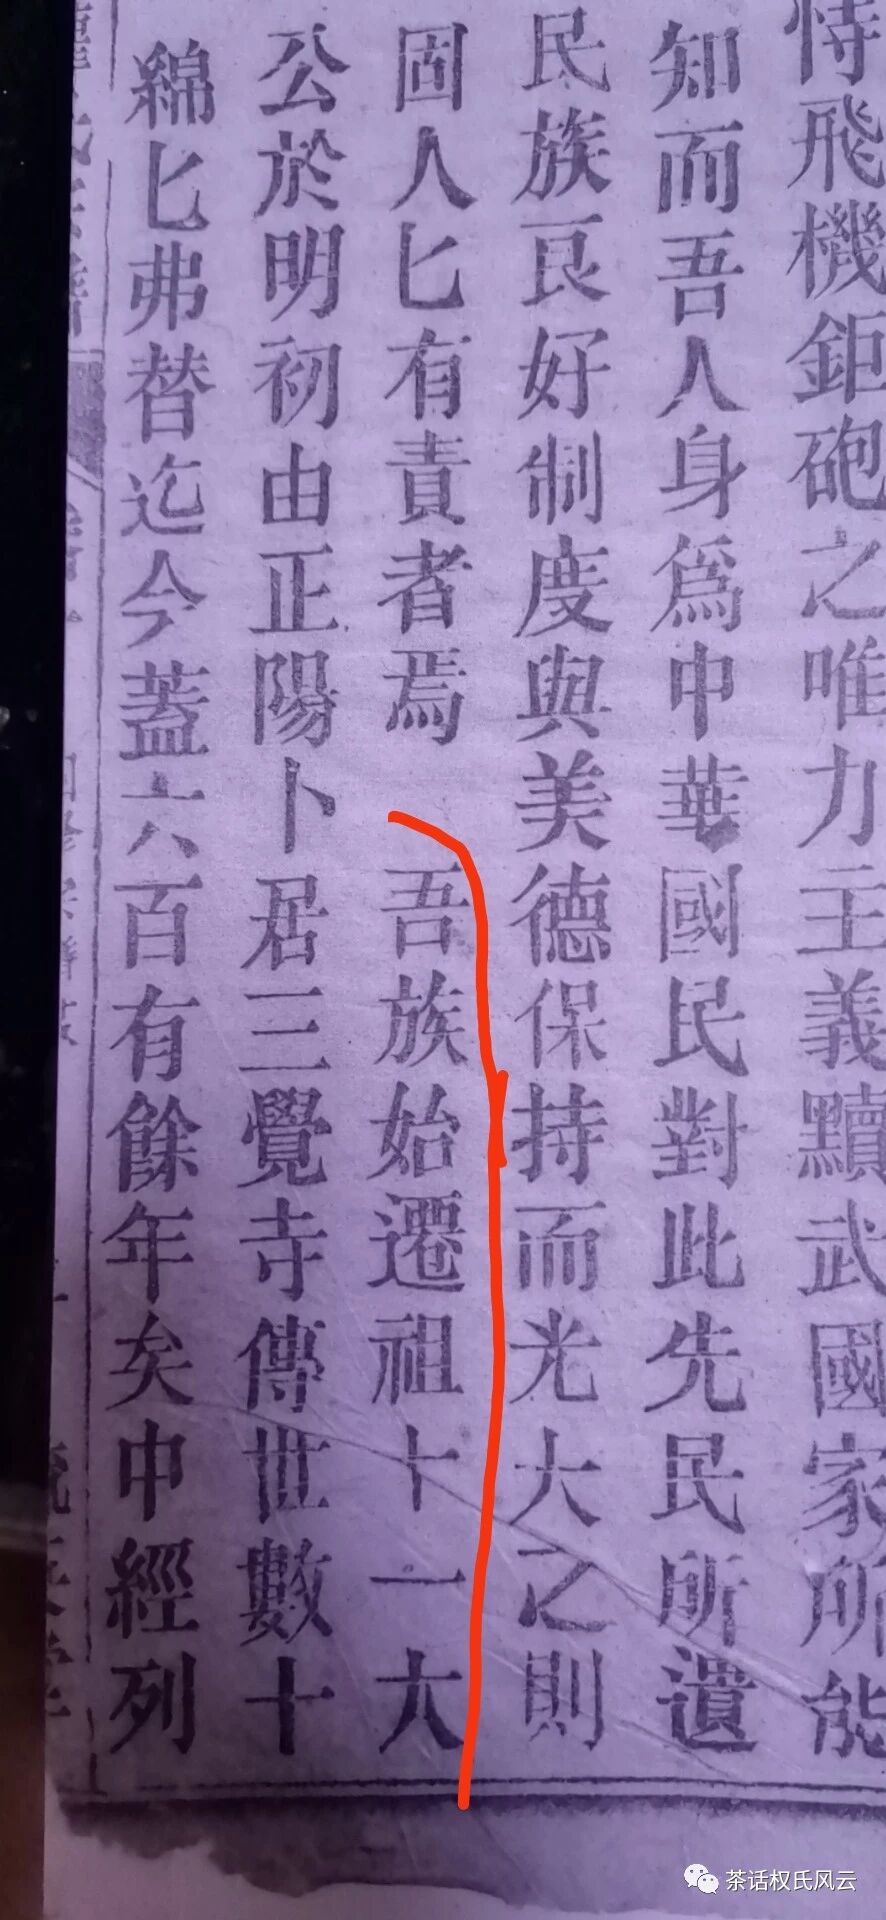 恃飛機鉅砲之唯力主義黷武國家所能
知而吾人身爲中華國民對此先民所遺
民族良好制度與美德保持而光大之則
固人匕有責者焉　吾族始遷祖十一大
公於明初由正陽卜居三覺寺傳世數十
綿匕弗替迄今蓋六百有餘年矣中經列
茶话权氏风云